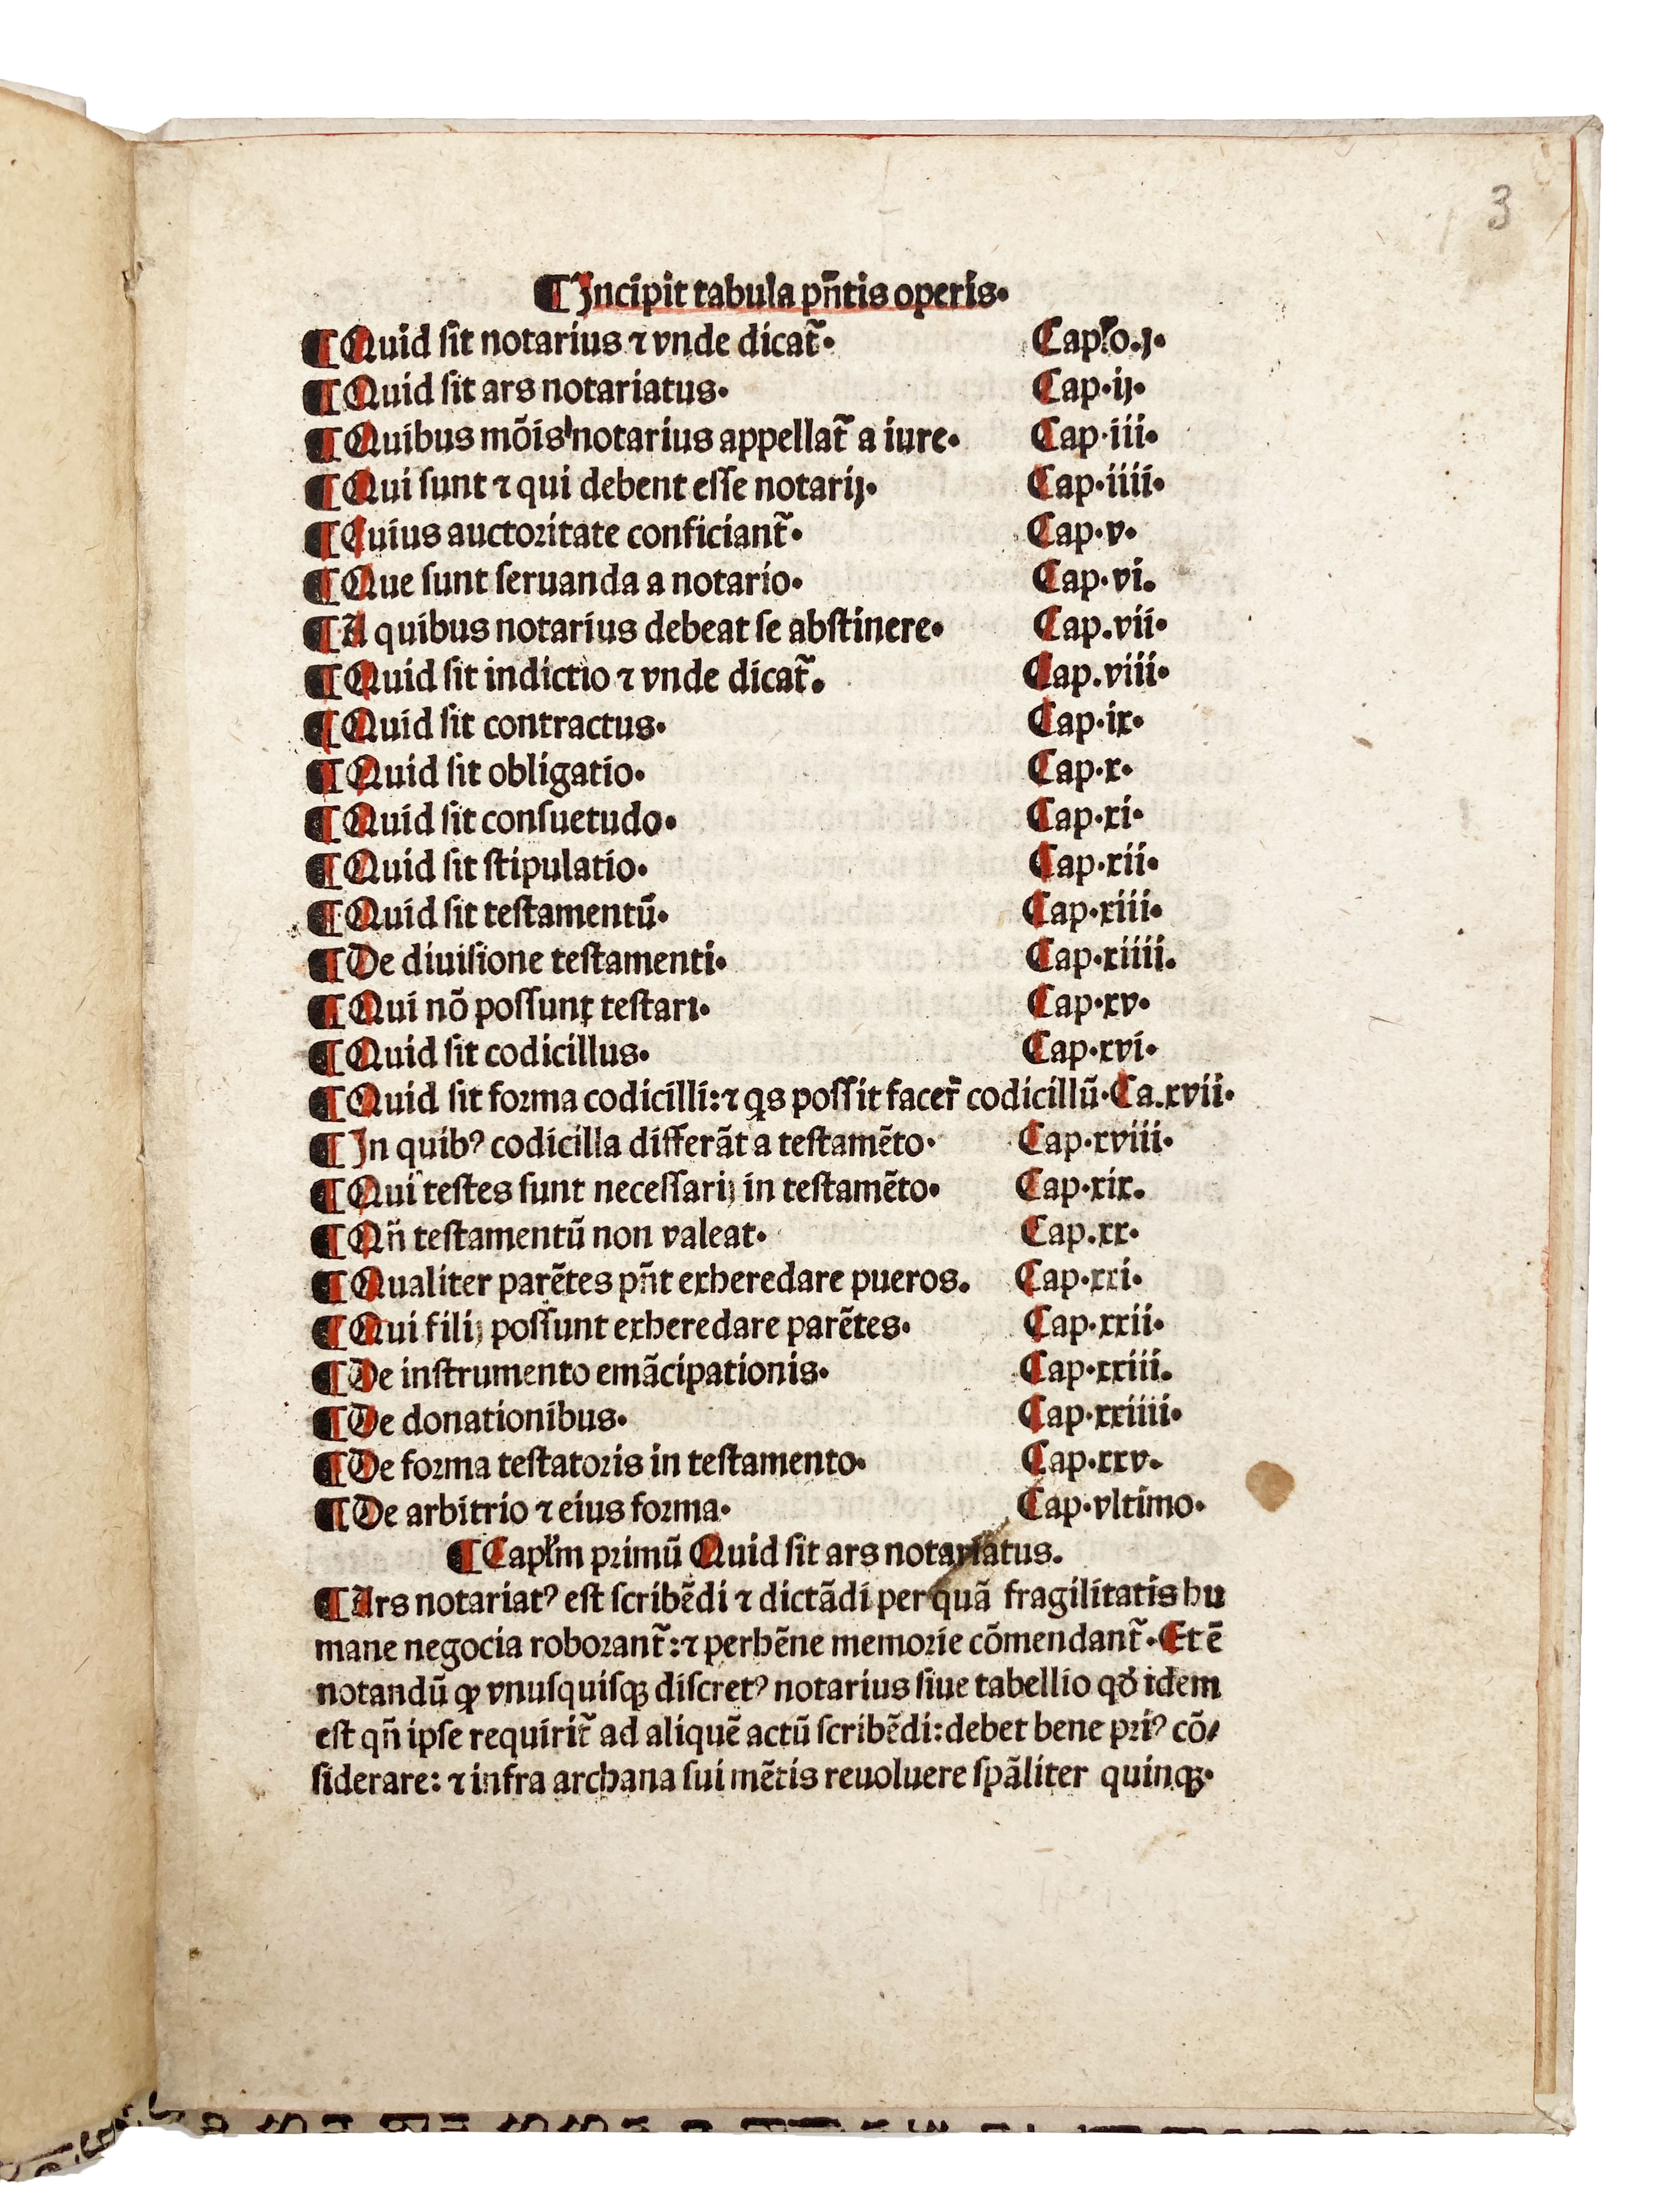 3
¶ Incipit tabula pñtis operis.
¶ Quid ſit notarius ⁊ vnde dicat̃. Capľo.j.
¶ Quid ſit ars notariatus. Cap.ij.
¶ Quibus mõis notarius appellat̃ a iure. Cap.iii.
¶ Qui ſunt ⁊ qui debent eſſe notarij. Cap.iiii.
¶ Cuius auctoꝛitate conficiant̃. Cap.v.
¶ Que ſunt ſeruanda a notario. Cap.vi.
¶ A quibus notarius debeat ſe abſtinere. Cap.vii.
¶ Quid ſit indictio ⁊ vnde dicat̃. Cap.viii.
¶ Quid ſit contractus. Cap.ix.
¶ Quid ſit obligatio. Cap.x.
¶ Quid ſit conſuetudo. Cap.xi.
¶ Quid ſit ſtipulatio. Cap.xii.
¶ Quid ſit teſtamentũ. Cap.xiii.
¶ De diuiſione teſtamenti. Cap.xiiii.
¶ Qui nõ poſſunt teſtari. Cap.xv.
¶ Quid ſit codicillus. Cap.xvi.
¶ Quid ſit foꝛma codicilli: ⁊ q̃s poſſit facer̃ codicillũ. Ca.xvii.
¶ In quibꝰ codicilla differãt a teſtamẽto. Cap.xviii.
¶ Qui teſtes ſunt neceſſarij in teſtamẽto. Cap.xix.
¶ Qñ teſtamentũ non valeat. Cap.xx.
¶ Qualiter parẽtes pñt exheredare pueros. Cap.xxi.
¶ Qui filij poſſunt exheredare parẽtes. Cap.xxii.
¶ De inſtrumento emãcipationis. Cap.xxiii.
¶ De donationibus. Cap.xxiiii.
¶ De foꝛma teſtatoꝛis in teſtamento. Cap.xxv.
¶ De arbitrio ⁊ eius foꝛma. Cap.vltimo.
¶ Capľm pꝛimũ Quid ſit ars notariatus.
¶ Ars notariatꝰ eſt ſcribẽdi ⁊ dictãdi per quã fragilitatis hu
mane negocia roboꝛant̃: ⁊ perhẽne memoꝛie cõmendant̃. Et ẽ
notandũ ꝙ vnuſquiſqꝫ diſcretꝰ notarius ſiue tabellio qđ idem
eſt qñ ipſe requirit̃ ad aliquẽ actũ ſcribẽdi: debet bene pꝛiꝰ cõ⸗
ſiderare: ⁊ infra archana ſui mẽtis reuoluere ſpãliter quinqꝫ.